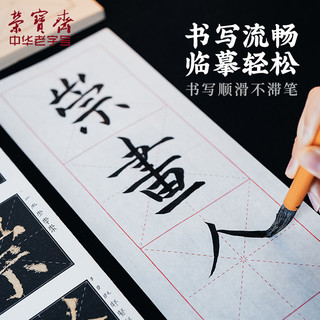 荣宝斋
中华老字号
书写流畅
临摹轻松
书写顺滑不滞笔
崇
画
人